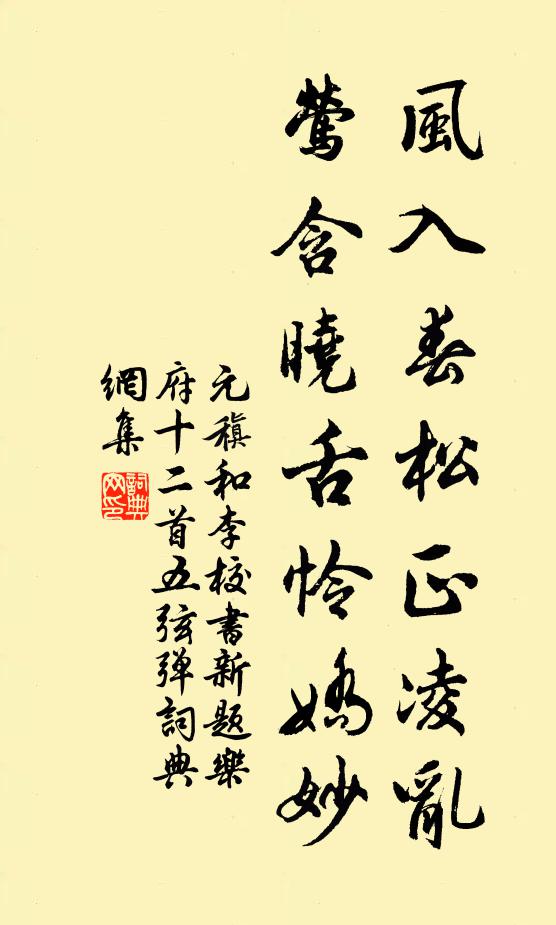 風入春松正凌亂
鶯含曉舌憐嬌妙
元稹和李校書新題樂
府十二首五弦弹詞典
網集
詞典网印